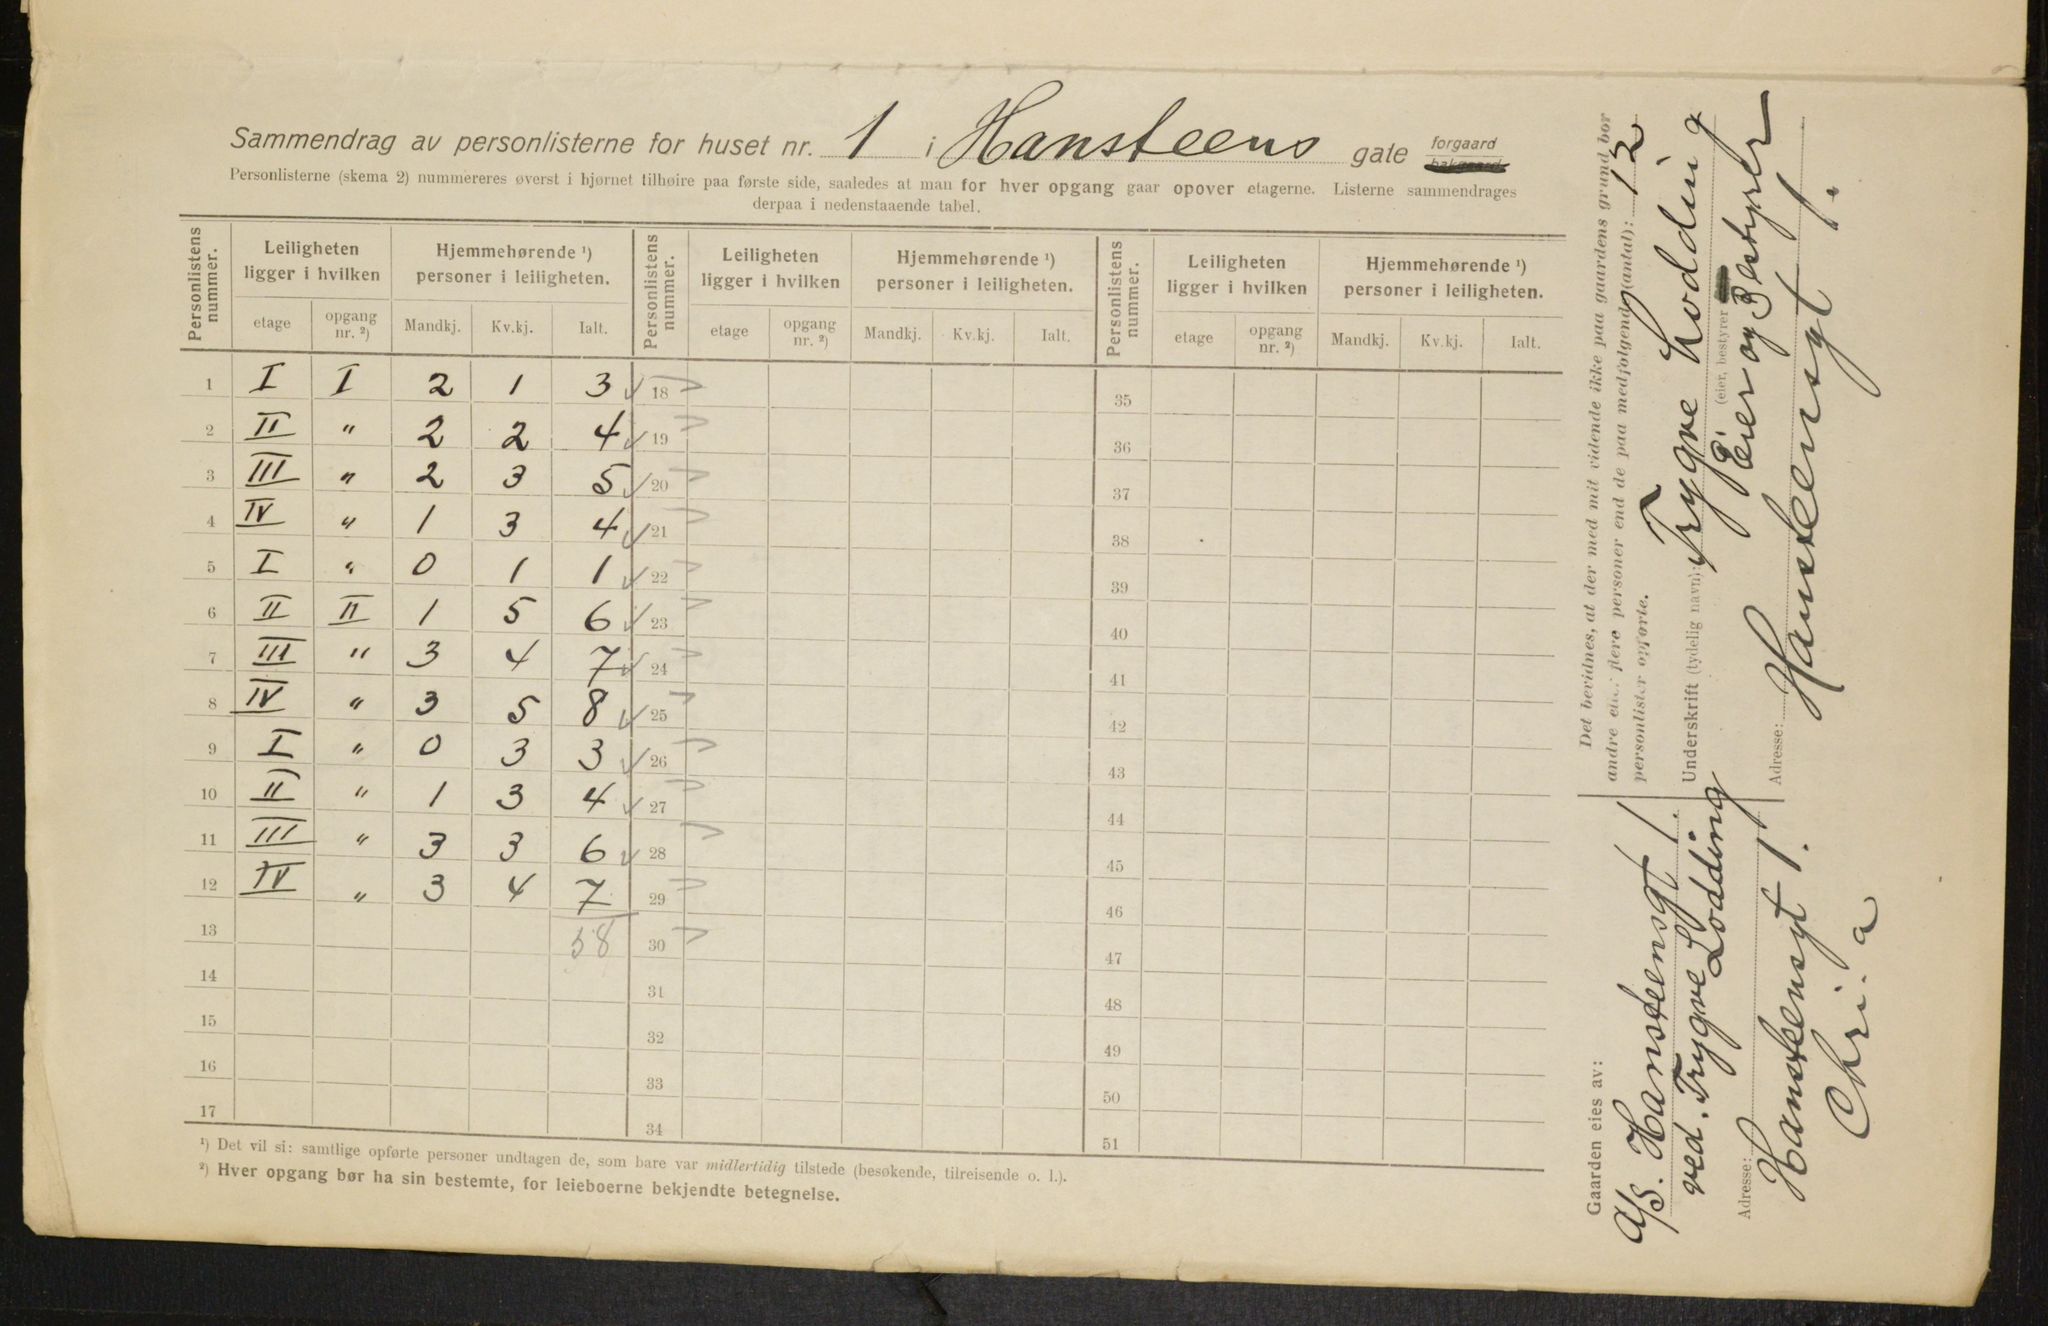 Sammendrag av personlisterne for huset nr. 1 i Hansteens gate forgaard bakgaard
Personlisterne (skema 2) nummereres øverst i hjørnet tilhøire paa første side, saaledes at man for hver opgang gaar opover etagerne. Listerne sammendrages
derpaa i nedenstaaende tabel.
Personlistens nummer. Leiligheten ligger i hvilken Hjemmehørende ¹) personer i leiligheten. Personlistens nummer. Leiligheten ligger i hvilken Hjemmehørende ¹) personer i leiligheten. Personlistens nummer. Leiligheten ligger i hvilken Hjemmehørende ¹) personer i leiligheten.
etage opgang nr. ²) Mandkj. Kv.kj. Ialt. etage opgang nr. ²) Mandkj. Kv.kj. Ialt. etage opgang nr. ²) Mandkj. Kv.kj. Ialt.
1 I I 2 1 3 ✓ 18 35
2 II " 2 2 4 ✓ 19 36
3 III " 2 3 5 ✓ 20 37
4 IV " 1 3 4 ✓ 21 38
5 I " 0 1 1 ✓ 22 39
6 II II 1 5 6 ✓ 23 40
7 III " 3 4 7 ✓ 24 41
8 IV " 3 5 8 ✓ 25 42
9 I " 0 3 3 ✓ 26 43
10 II " 1 3 4 ✓ 27 44
11 III " 3 3 6 ✓ 28 45
12 IV " 3 4 7 29 46
13 58 30 47
14 31 48
15 32 49
16 33 50
17 34 51
¹) Det vil si: samtlige opførte personer undtagen de, som bare var midlertidig tilstede (besøkende, tilreisende o. l.).
²) Hver opgang bør ha sin bestemte, for leieboerne bekjendte betegnelse.
Det bevidnes, at der med mit vidende ikke paa gaardens grund bor
andre eller flere personer end de paa medfølgende (antal): 12
personlister opførte.
Underskrift (tydelig navn): Trygve Lodding
(eier, bestyrer
Eier og Bestyrer
Adresse: Hansteensgt 1.
Gaarden eies av:
A/S. Hansteensgt 1.
ved. Trygve Lodding
Adresse: Hansteensgt 1.
Chri.a